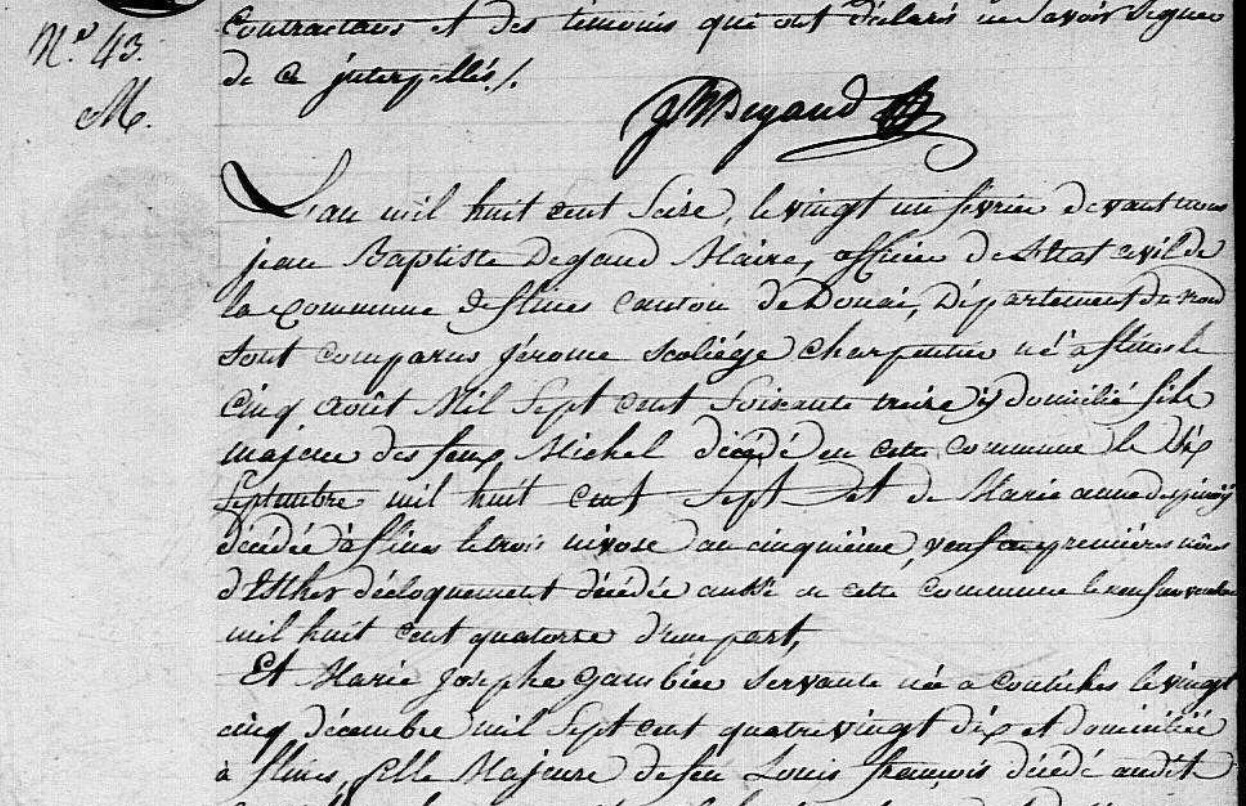 N.º 43.
M.
Contractans et des témoins qui ont déclaré ne Savoir Signer
de ce interpellés /.
JBDegand
L'an mil huit cent Seize, le vingt un fevrier devant nous
jean Baptiste Degand Maire, officier de l'Etat civil de
la Commune de flines Canton de Douai, Département du nord
sont comparus jérome scoliége charpentier né a flines le
cinq août Mil Sept cent Soixante treize y domicilié fils
majeur des feux Michel décédé en cette commune le dix
Septembre mil huit cent Sept et de Marie anne despinoy
décédée à flines le trois nivose an cinquième, veuf en premières nôces
d'Esther décloquement décédée aussi en cette commune le neuf
mil huit cent quatorze d'une part,
Et Marie Josephe Gambier servante née a coutiches le vingt
cinq décembre mil Sept cent quatrevingt dix et domiciliée
à flines, fille Majeure de feu Louis françois décédé audit